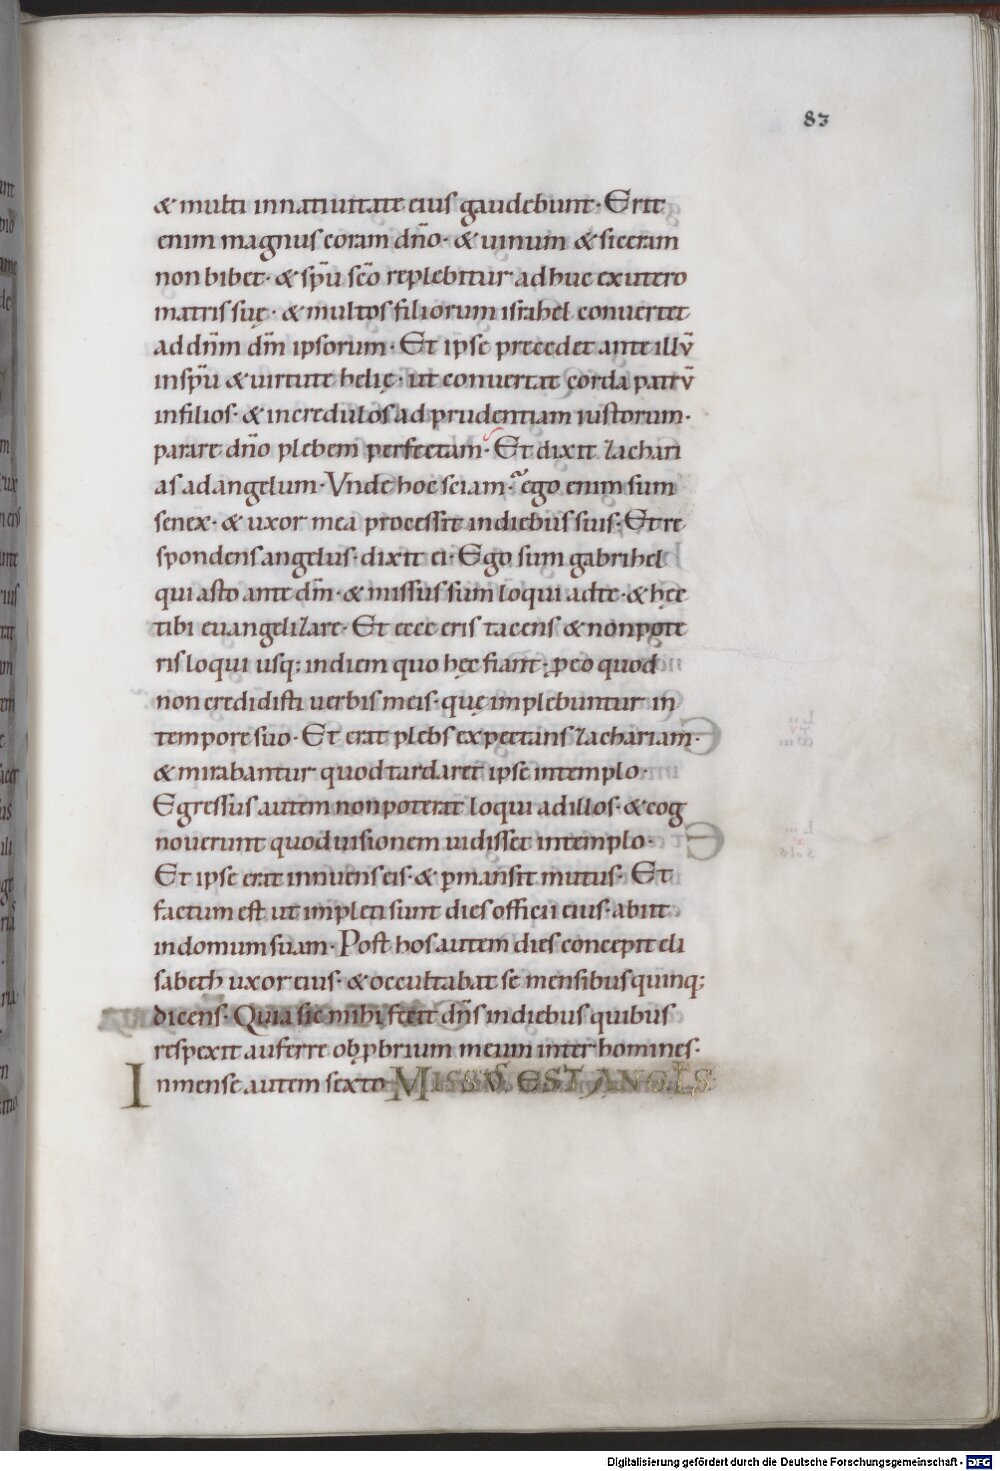 83
& multi innatiuitate eius gaudebunt· Erit
enim magnus coram dño· & uinum & siceram
non bibet· & sp̄u sc̄o replebitur adhuc exutero
matris suę· & multos filiorum israhel conuertet
addn̄m dm̄ ipsorum· Et ip̄se precedet ante illū
insp̄u & uirtute helię· ut conuertat corda patrū
infilios· & incredulos ad prudentiam iustorum·
parare dño plebem perfectam· Et dixit zachari
as adangelum· Vnde hoc sciam· ego enim sum
senex· & uxor mea processit indiebus suis· Et re
spondens angelus· dixit ei· Ego sum gabrihel
qui asto ante dm̄· & missus sum loqui adte· & hęc
tibi euangelizare· Et ecce eris tacens & nonpote
ris loqui usq; indiem quo hęc fiant· ꝓeo quod
non credidisti uerbis meis· quę implebuntur in
tempore suo· Et erat plebs expectans zachariam·
& mirabantur quod tardaret ipse intemplo·
Egressus autem nonpoterat loqui adillos· & cog
nouerunt quod uisionem uidisset intemplo·
Et ipse erat innuens eis· & ꝑmansit mutus· Et
factum est ut impleti sunt dies officii eius· abiit
indomum suam· Post hos autem dies concepit eli
sabeth uxor eius· & occultabat se mensibus quinq;
dicens· Quia sic mihi fecit dn̄s indiebus quibus
respexit auferre obꝓbrium meum inter homines·
Inmense autem sexto MISSUS EST ANGLS
Digitalisierung gefördert durch die Deutsche Forschungsgemeinschaft - DFG